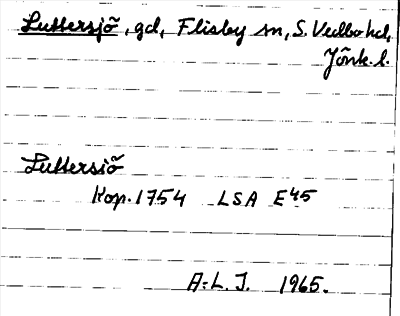 Luttersjö, gd, Flisby sn, S. Vedbo hd,
Jönk. l.
Luttersiö
Kop. 1754 LSA E45
A-L. J. 1965.